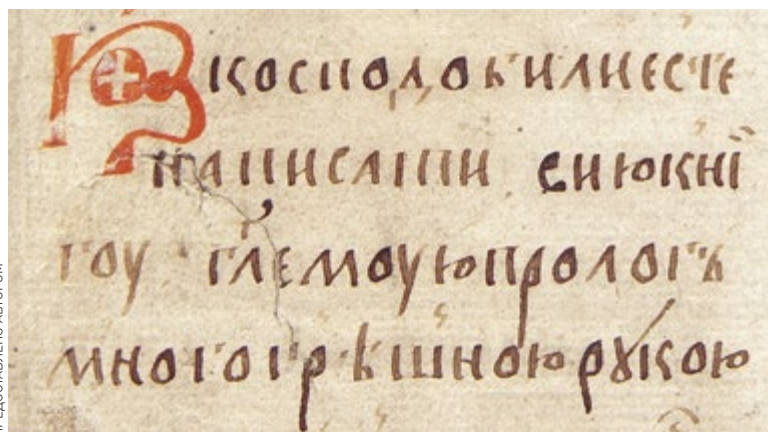 Ꙗкосподобилиесте
написати сиюкнї
гоу гл҃емоуюпрологъ
многогрѣшноюрꙋкою